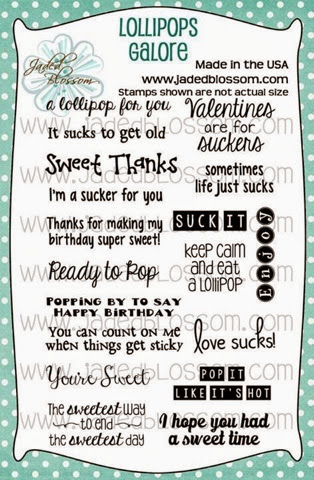 LOLLIPOPS
GALORE
Jaded
Blossom
Made in the USA
www.jadedblossom.com
Stamps shown are not actual size
a lollipop for you
It sucks to get old
Sweet Thanks
I'm a sucker for you
Thanks for making my
birthday super sweet!
Ready to Pop
Popping by to say
Happy Birthday
You can count on me
when things get sticky
You're Sweet
The sweetest way
to end
the sweetest day
Valentines
are for
suckers
sometimes
life just sucks
SUCK IT
keep calm
and eat
a lollipop
Enjoy
love sucks!
POP IT
LIKE IT'S HOT
I hope you had
a sweet time
www.jadedblossom.com
www.jadedblossom.com
www.jadedblossom.com
www.jadedblossom.com
www.jadedblossom.com
www.jadedblossom.com
www.jadedblossom.com